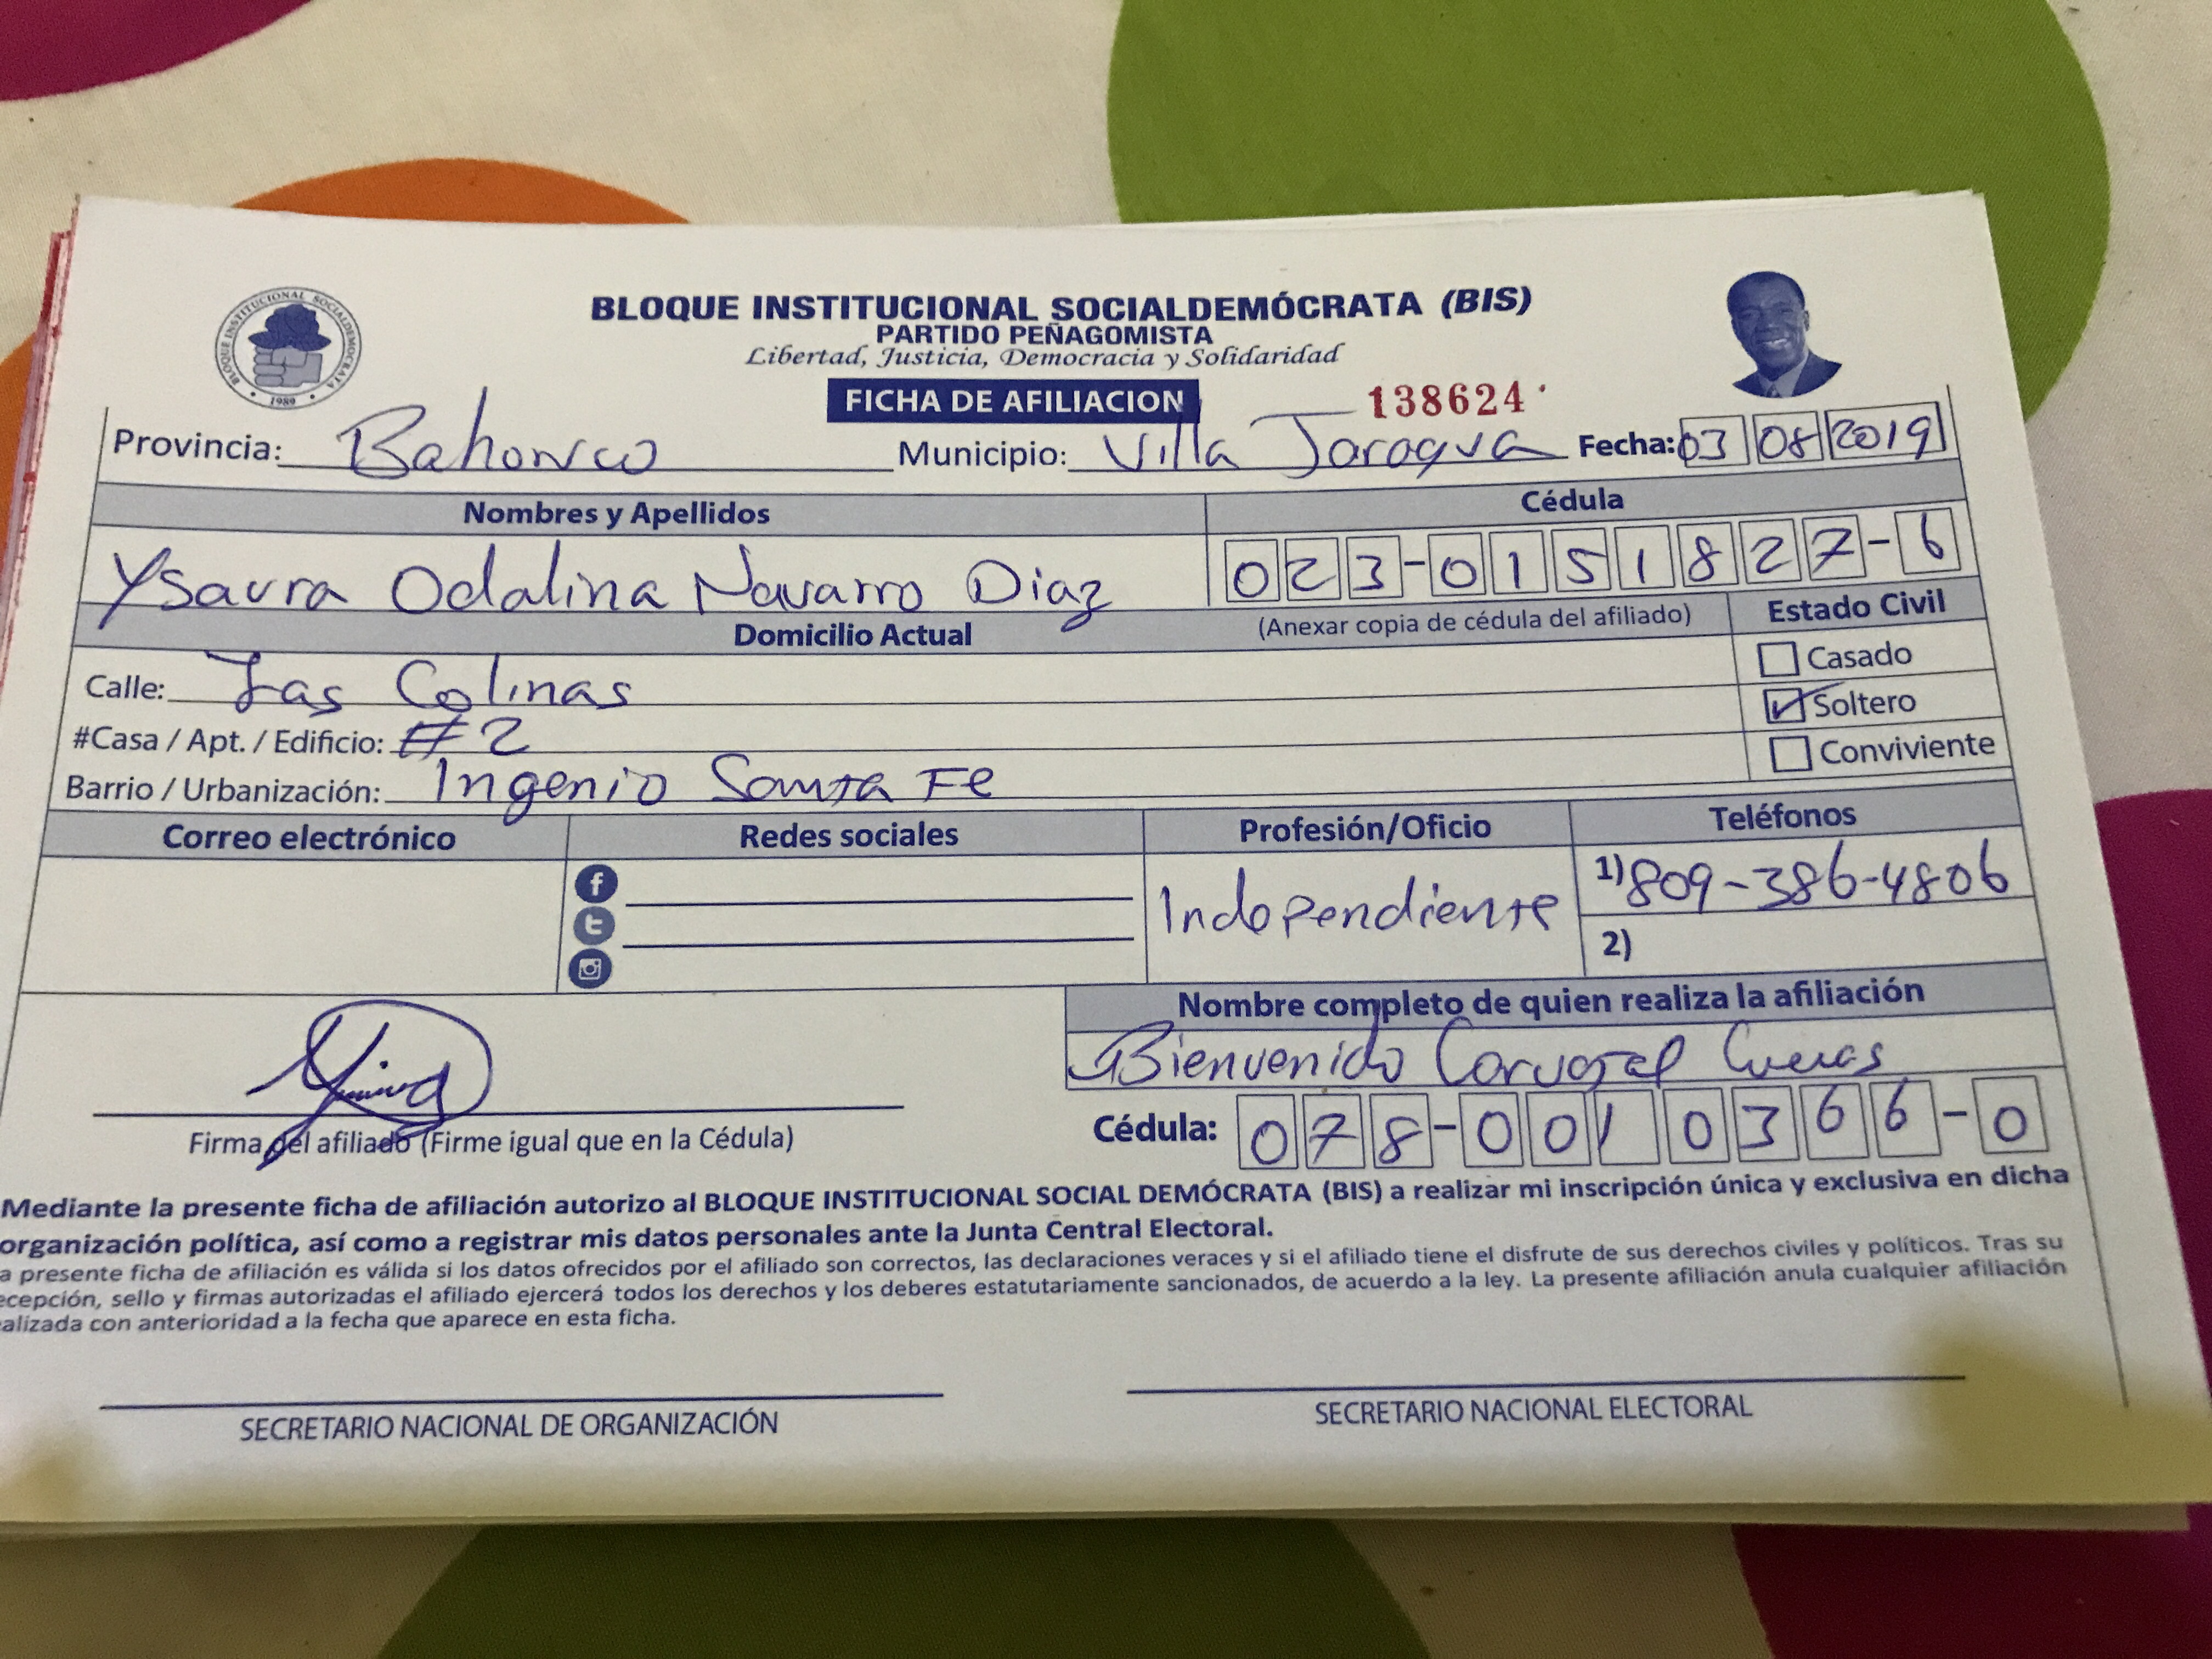 BLOQUE INSTITUCIONAL SOCIALDEMÓCRATA (BIS)
PARTIDO PEÑAGOMISTA
Libertad, Justicia, Democracia y Solidaridad
BLOQUE INSTITUCIONAL SOCIALDEMOCRATA
1989
FICHA DE AFILIACION
138624
Provincia: Bahoruco Municipio: Villa Jaragua Fecha: 03 08 2019
Nombres y Apellidos Cédula
Ysaura Odalina Navarro Diaz 023-0151827-6
Domicilio Actual (Anexar copia de cédula del afiliado) Estado Civil
Calle: Las Colinas Casado
#Casa / Apt. / Edificio: #2 Soltero
Barrio / Urbanización: Ingenio Santa Fe Conviviente
Correo electrónico Redes sociales Profesión/Oficio Teléfonos
Independiente 1) 809-386-4806
2)
Nombre completo de quien realiza la afiliación
Bienvenido Carvajal Cuevas
Firma del afiliado (Firme igual que en la Cédula) Cédula: 078-0010366-0
Mediante la presente ficha de afiliación autorizo al BLOQUE INSTITUCIONAL SOCIAL DEMÓCRATA (BIS) a realizar mi inscripción única y exclusiva en dicha
organización política, así como a registrar mis datos personales ante la Junta Central Electoral.
a presente ficha de afiliación es válida si los datos ofrecidos por el afiliado son correctos, las declaraciones veraces y si el afiliado tiene el disfrute de sus derechos civiles y políticos. Tras su
ecepción, sello y firmas autorizadas el afiliado ejercerá todos los derechos y los deberes estatutariamente sancionados, de acuerdo a la ley. La presente afiliación anula cualquier afiliación
alizada con anterioridad a la fecha que aparece en esta ficha.
SECRETARIO NACIONAL DE ORGANIZACIÓN SECRETARIO NACIONAL ELECTORAL